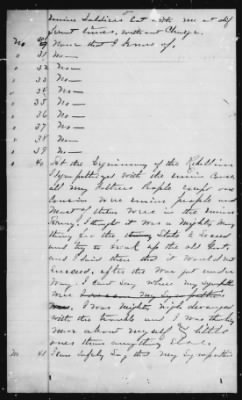 Union Soldiers Eat with me at dif
ferent times, without Charge.
No 30 None that I know of.
" 31 No—
" 32 No—
" 33 No—
" 34 No—
" 35 No—
" 36 No—
" 37 No—
" 38 No—
" 39 No—
" 40 At the beginning of the Rebellion
I sympathized with the Union Cause
all my Fathers People except one
Cousin were Union people and
Most of them were in the Union
Army. I thought it was a Mighty
thing for the State to Secede
and try to break up the old Govt.
and I said then that it would not
succeed, after the War got under
way. I cant say where my sympathies
were
I was mighty
with the trouble and I was thinking
more about myself & little
ones than anything Else.
No 41 I can safely Say that my Sympathies